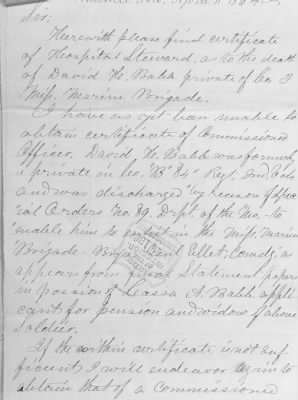 Sir.
Herewith please find certificate
of Hospital Steward, as to the death
of David H. Babb private of Co. I
Miss. Marine Brigade.
I have as yet been unable to
obtain certificate of Commissioned
Officer. David H. Babb was formerly
a private in Co. "B" 84" Regt. Ind. Vols
and was discharged by reason of Spec
ial Orders No. 89. Dept. of the Mo. - to
enable him to enlist in the Miss. Marine
Brigade - Brig. Genl Ellet, Comdg. as
appears from final Statement papers
in possession of A. Babb appli
cant for pension and widow of above
Soldier.
If the within certificate is not suf
ficient, I will endeavor again to
obtain that of a Commissioned